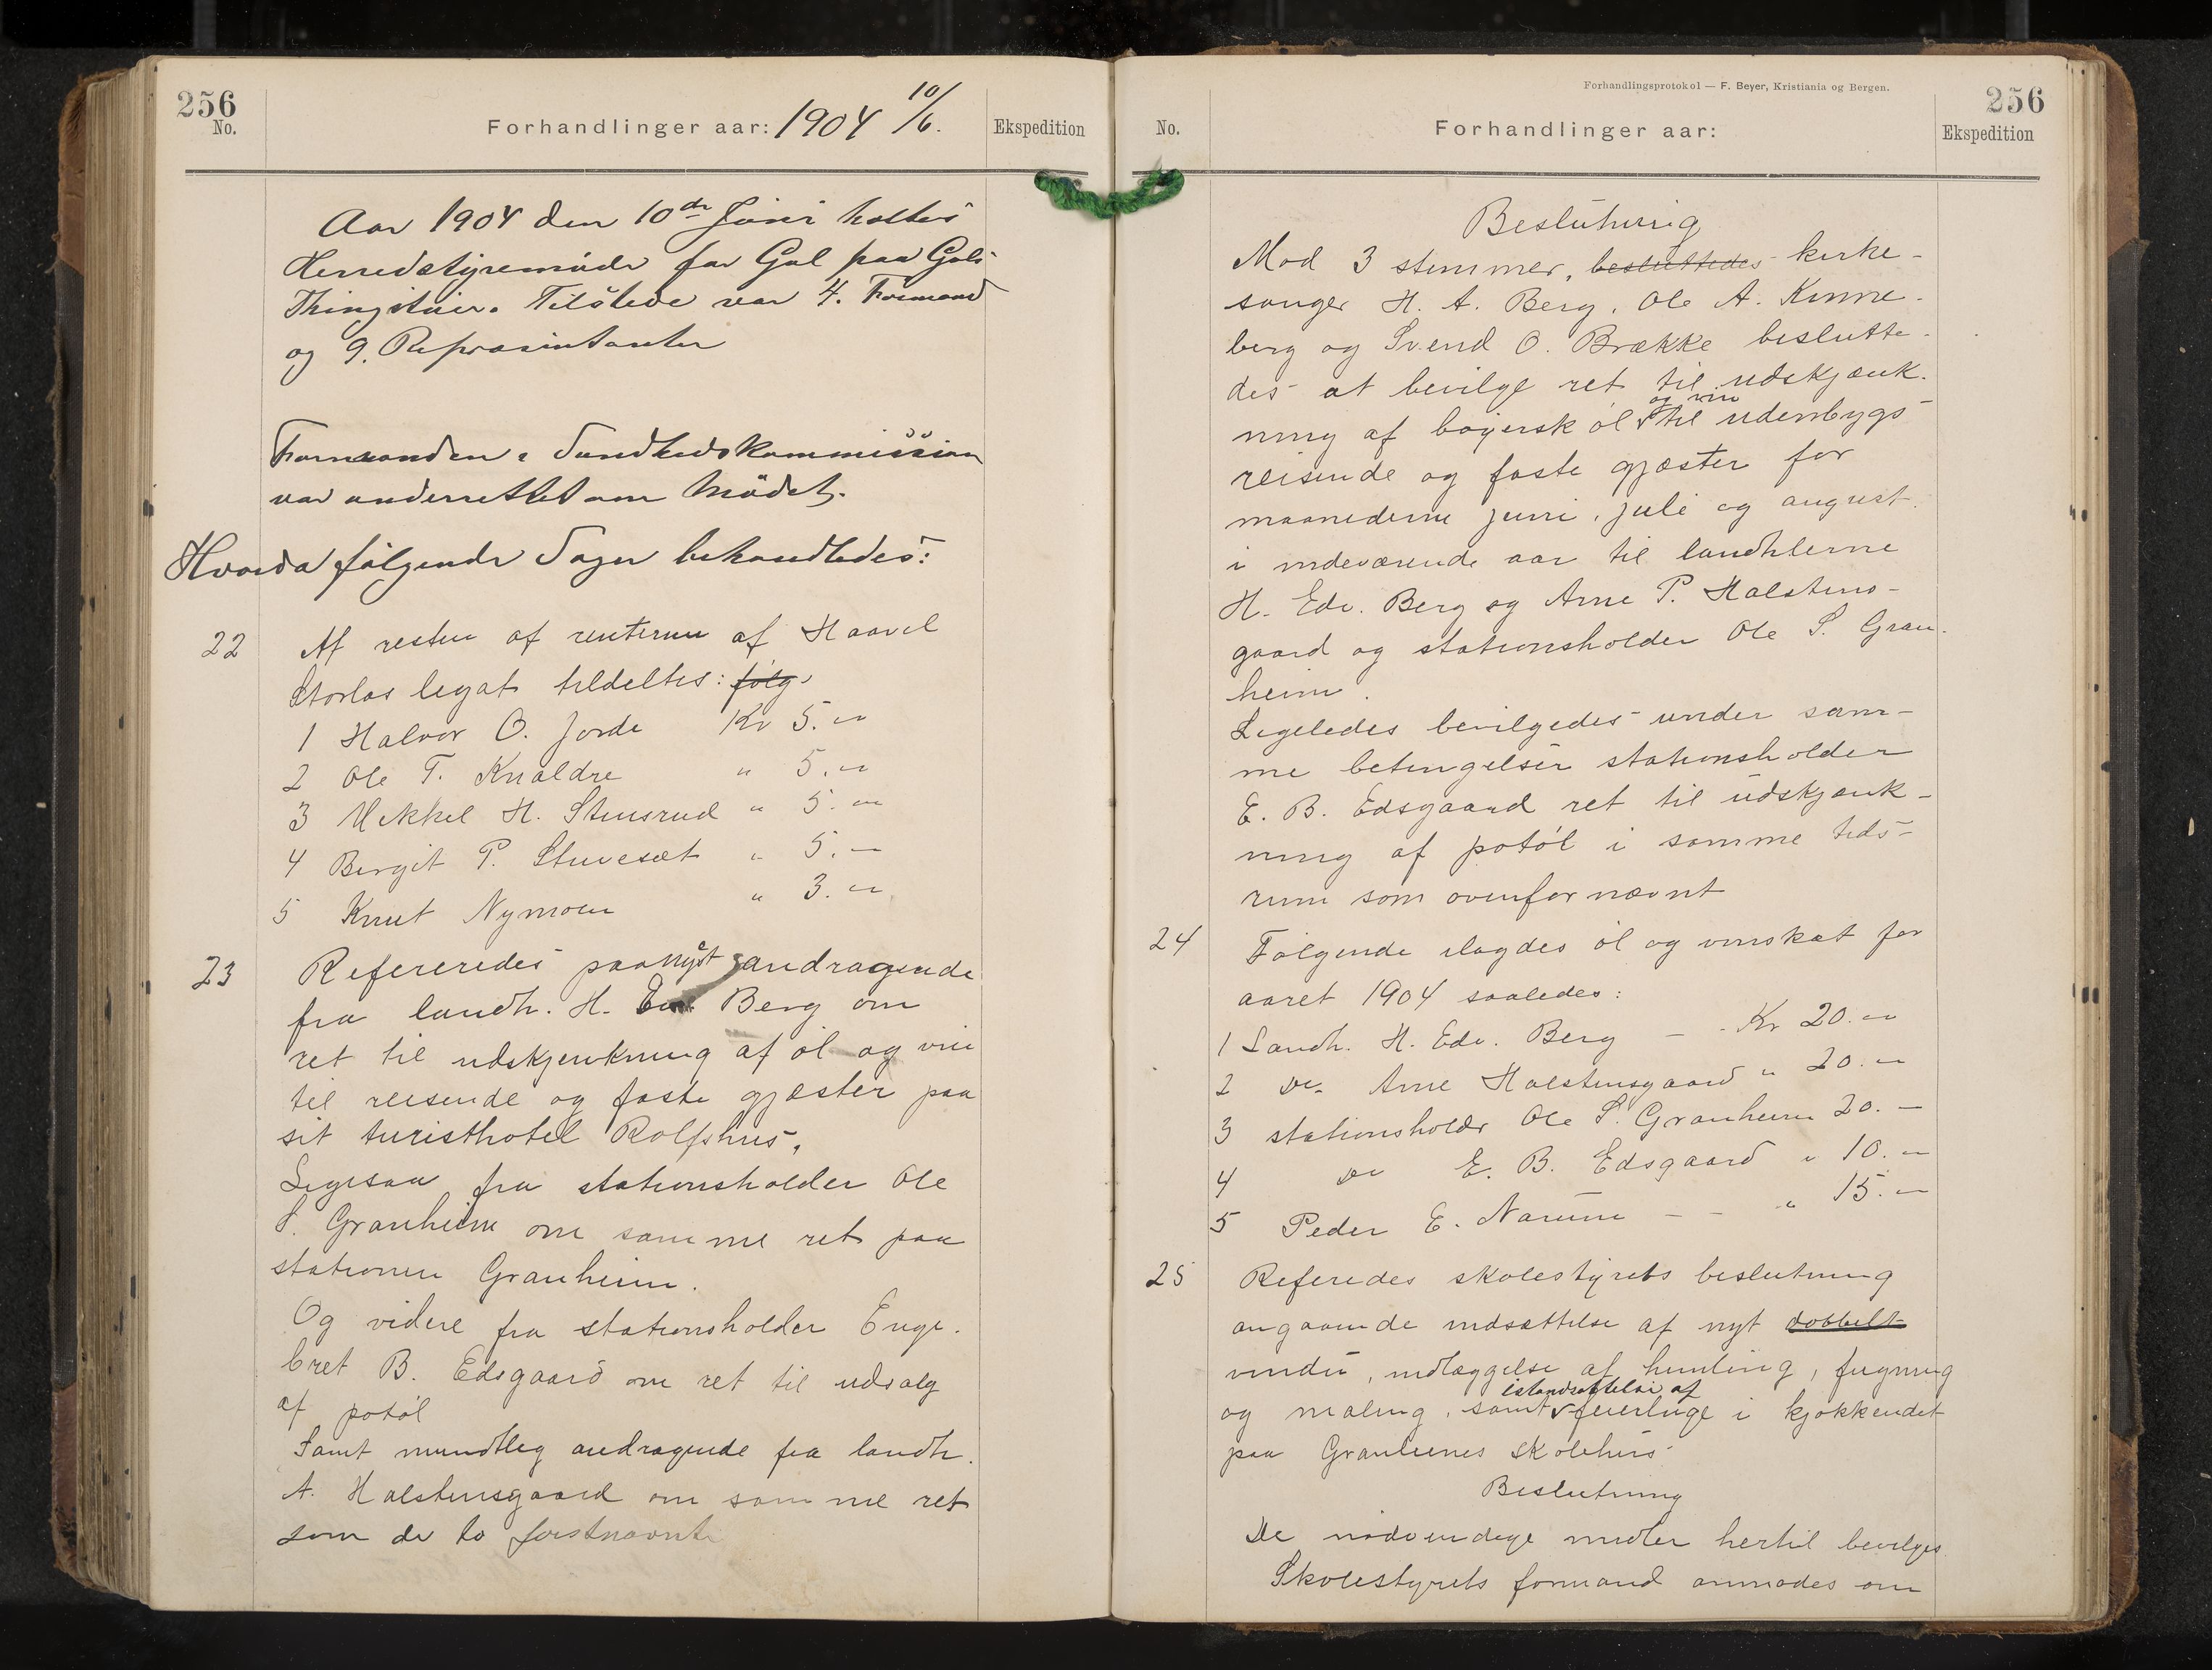 256
No.
Forhandlinger aar: 1904 10/6.
Ekspedition
Aar 1904 den 10de Juni holtes
Herredstyremøde for Gol paa Gols
Thingstuer. Tilstede var 4. Formænd
og 9. Repræsintanter
Formanden i Sundhedskommission
var underrettet om Mødet.
Hvorda følgende Sager behandledes:
22 Af resten af renterne af Haavel
Storlas legat tildeltes: følg.
1 Halvor O. Jorde Kr 5. "
2 Ole T. Knaldre " 5. "
3 Mekkel H. Stensrud " 5. "
4 Bergit P. Stuvesæt " 5. —
5 Knut Nymoen " 3. "
23 Refereredes paanyt andragende
fra landh. H. Edv. Berg om
ret til udskjenkning af øl og vin
til reisende og faste gjæster paa
sit turisthotel Rolfshus.
Ligesaa fra stationsholder Ole
S. Granheim om samme ret paa
stationen Granheim.
Og videre fra stationsholder Enge-
bret B. Edsgaard om ret til udsalg
af potøl
Samt mundtlig andragende fra landh.
A. Halstensgaard om samme ret
som de to førstnævnte
Forhandlingsprotokol — F. Beyer, Kristiania og Bergen.
256
No.
Forhandlinger aar:
Ekspedition
Beslutning
Mod 3 stemmer, besluttedes kirke-
sanger H. A. Berg, Ole A. Kinne-
berg og Svend O. Brække beslutte-
des at bevilge ret til udskjænk-
og vin
ning af bayersk øl til udenbygs
reisende og faste gjæster for
maanederne juni, juli og august
i indeværende aar til landhlerne
H. Edv. Berg og Arne P. Halstens-
gaard og stationsholder Ole S. Gran-
heim.
Ligeledes bevilgedes under sam-
me betingelser stationsholder
E. B. Edsgaard ret til udskjænk-
ning af potøl i samme tids-
rum som ovenfor nævnt
24 Følgende ilagdes øl og vinskat for
aaret 1904 saaledes:
1 Landh. H. Edv. Berg — - Kr 20. "
2 Do. Arne Halstensgaard " 20. "
3 stationsholdr Ole S. Granheim 20. —
4 Do E. B. Edsgaard " 10. "
5 Peder E. Narum — - " 15. "
25 Referedes skolestyrets beslutning
angaaende indsættelse af nyt dobbelt
vindu, indlæggelse af himling, fugning
istandsættelse af
og maling, samt feierluge i kjøkkendet
paa Granlienes skolehus.
Beslutning
De nødvendige midler hertil bevilges
Skolestyrets formand anmodes om